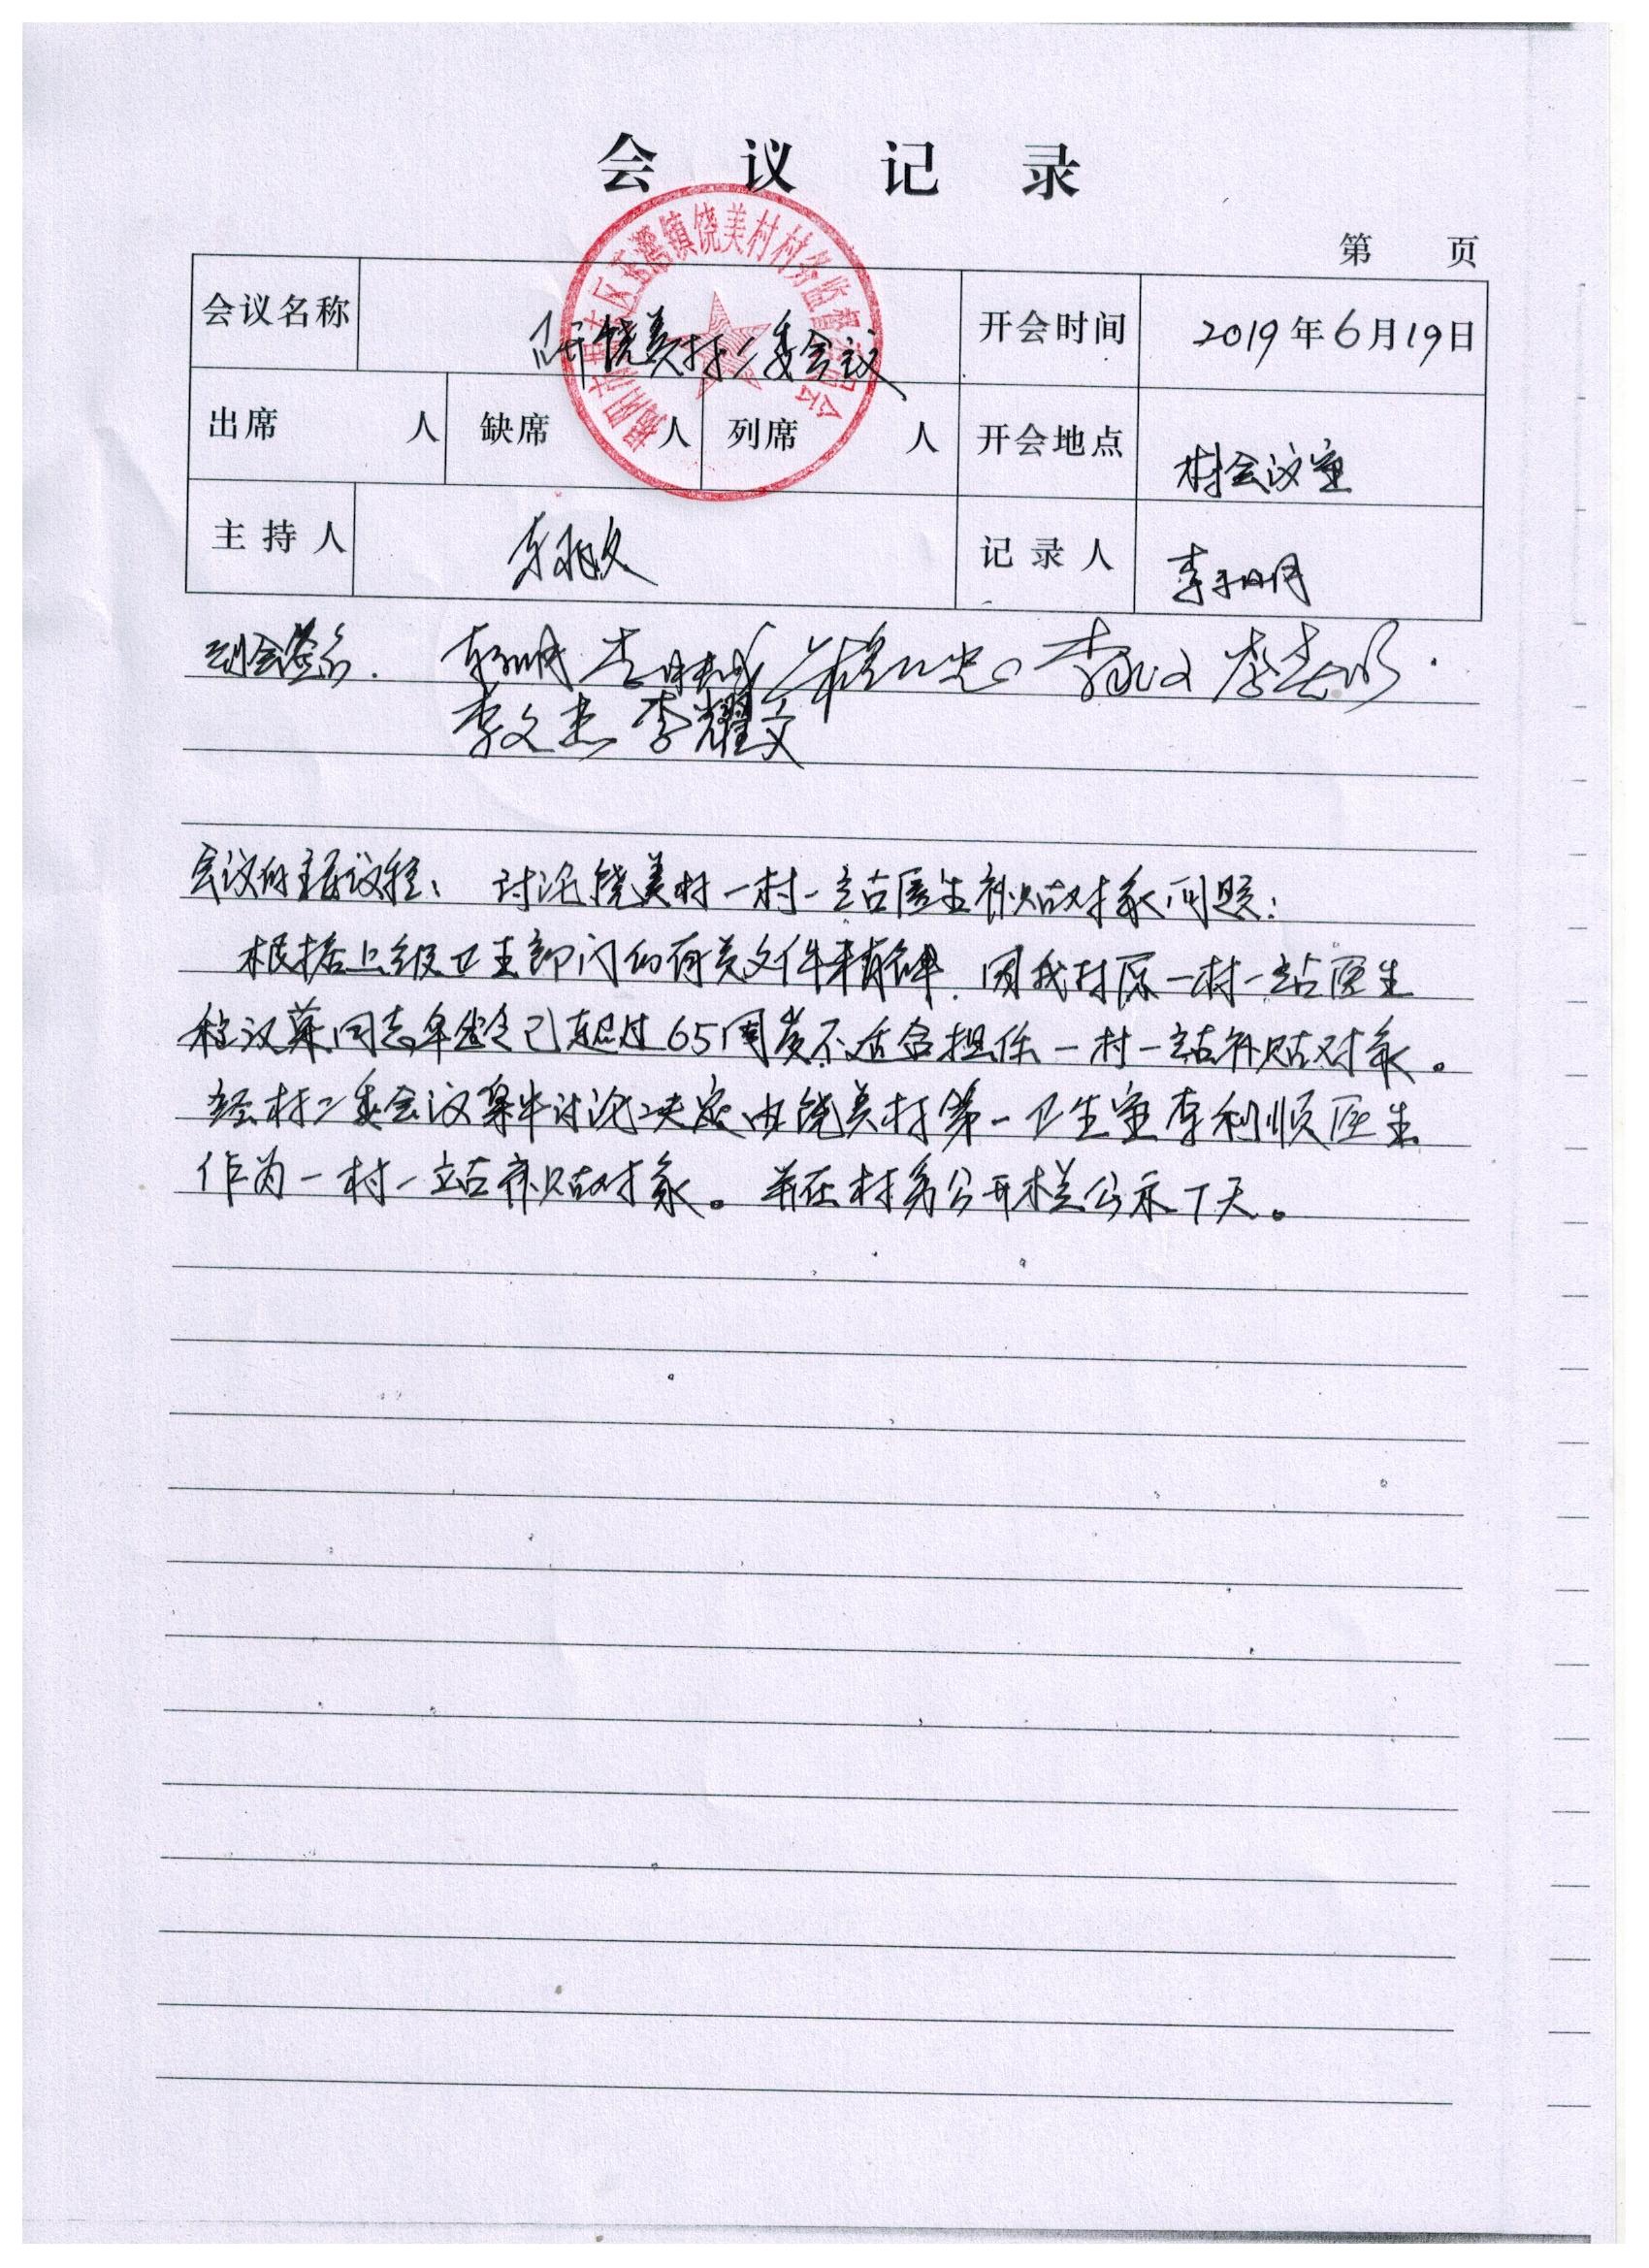 会议记录
第 页
会议名称 召开饶美村二委会议 开会时间 2019年6月19日
出席 人 缺席 人 列席 人 开会地点 村会议室
主持人 记录人
镇饶美村村务监督
到会签名.
李文忠 李耀文
会议的主要议程: 讨论饶美村一村一站医生补贴对象问题:
根据上级卫生部门的有关文件精神. 因我村原一村一站医生
同志年龄已超过65周岁不适合担任一村一站补贴对象。
经村二委会议集中讨论决定由饶美村第一卫生室李利顺医生
作为一村一站补贴对象。并在村务公开栏公示7天。